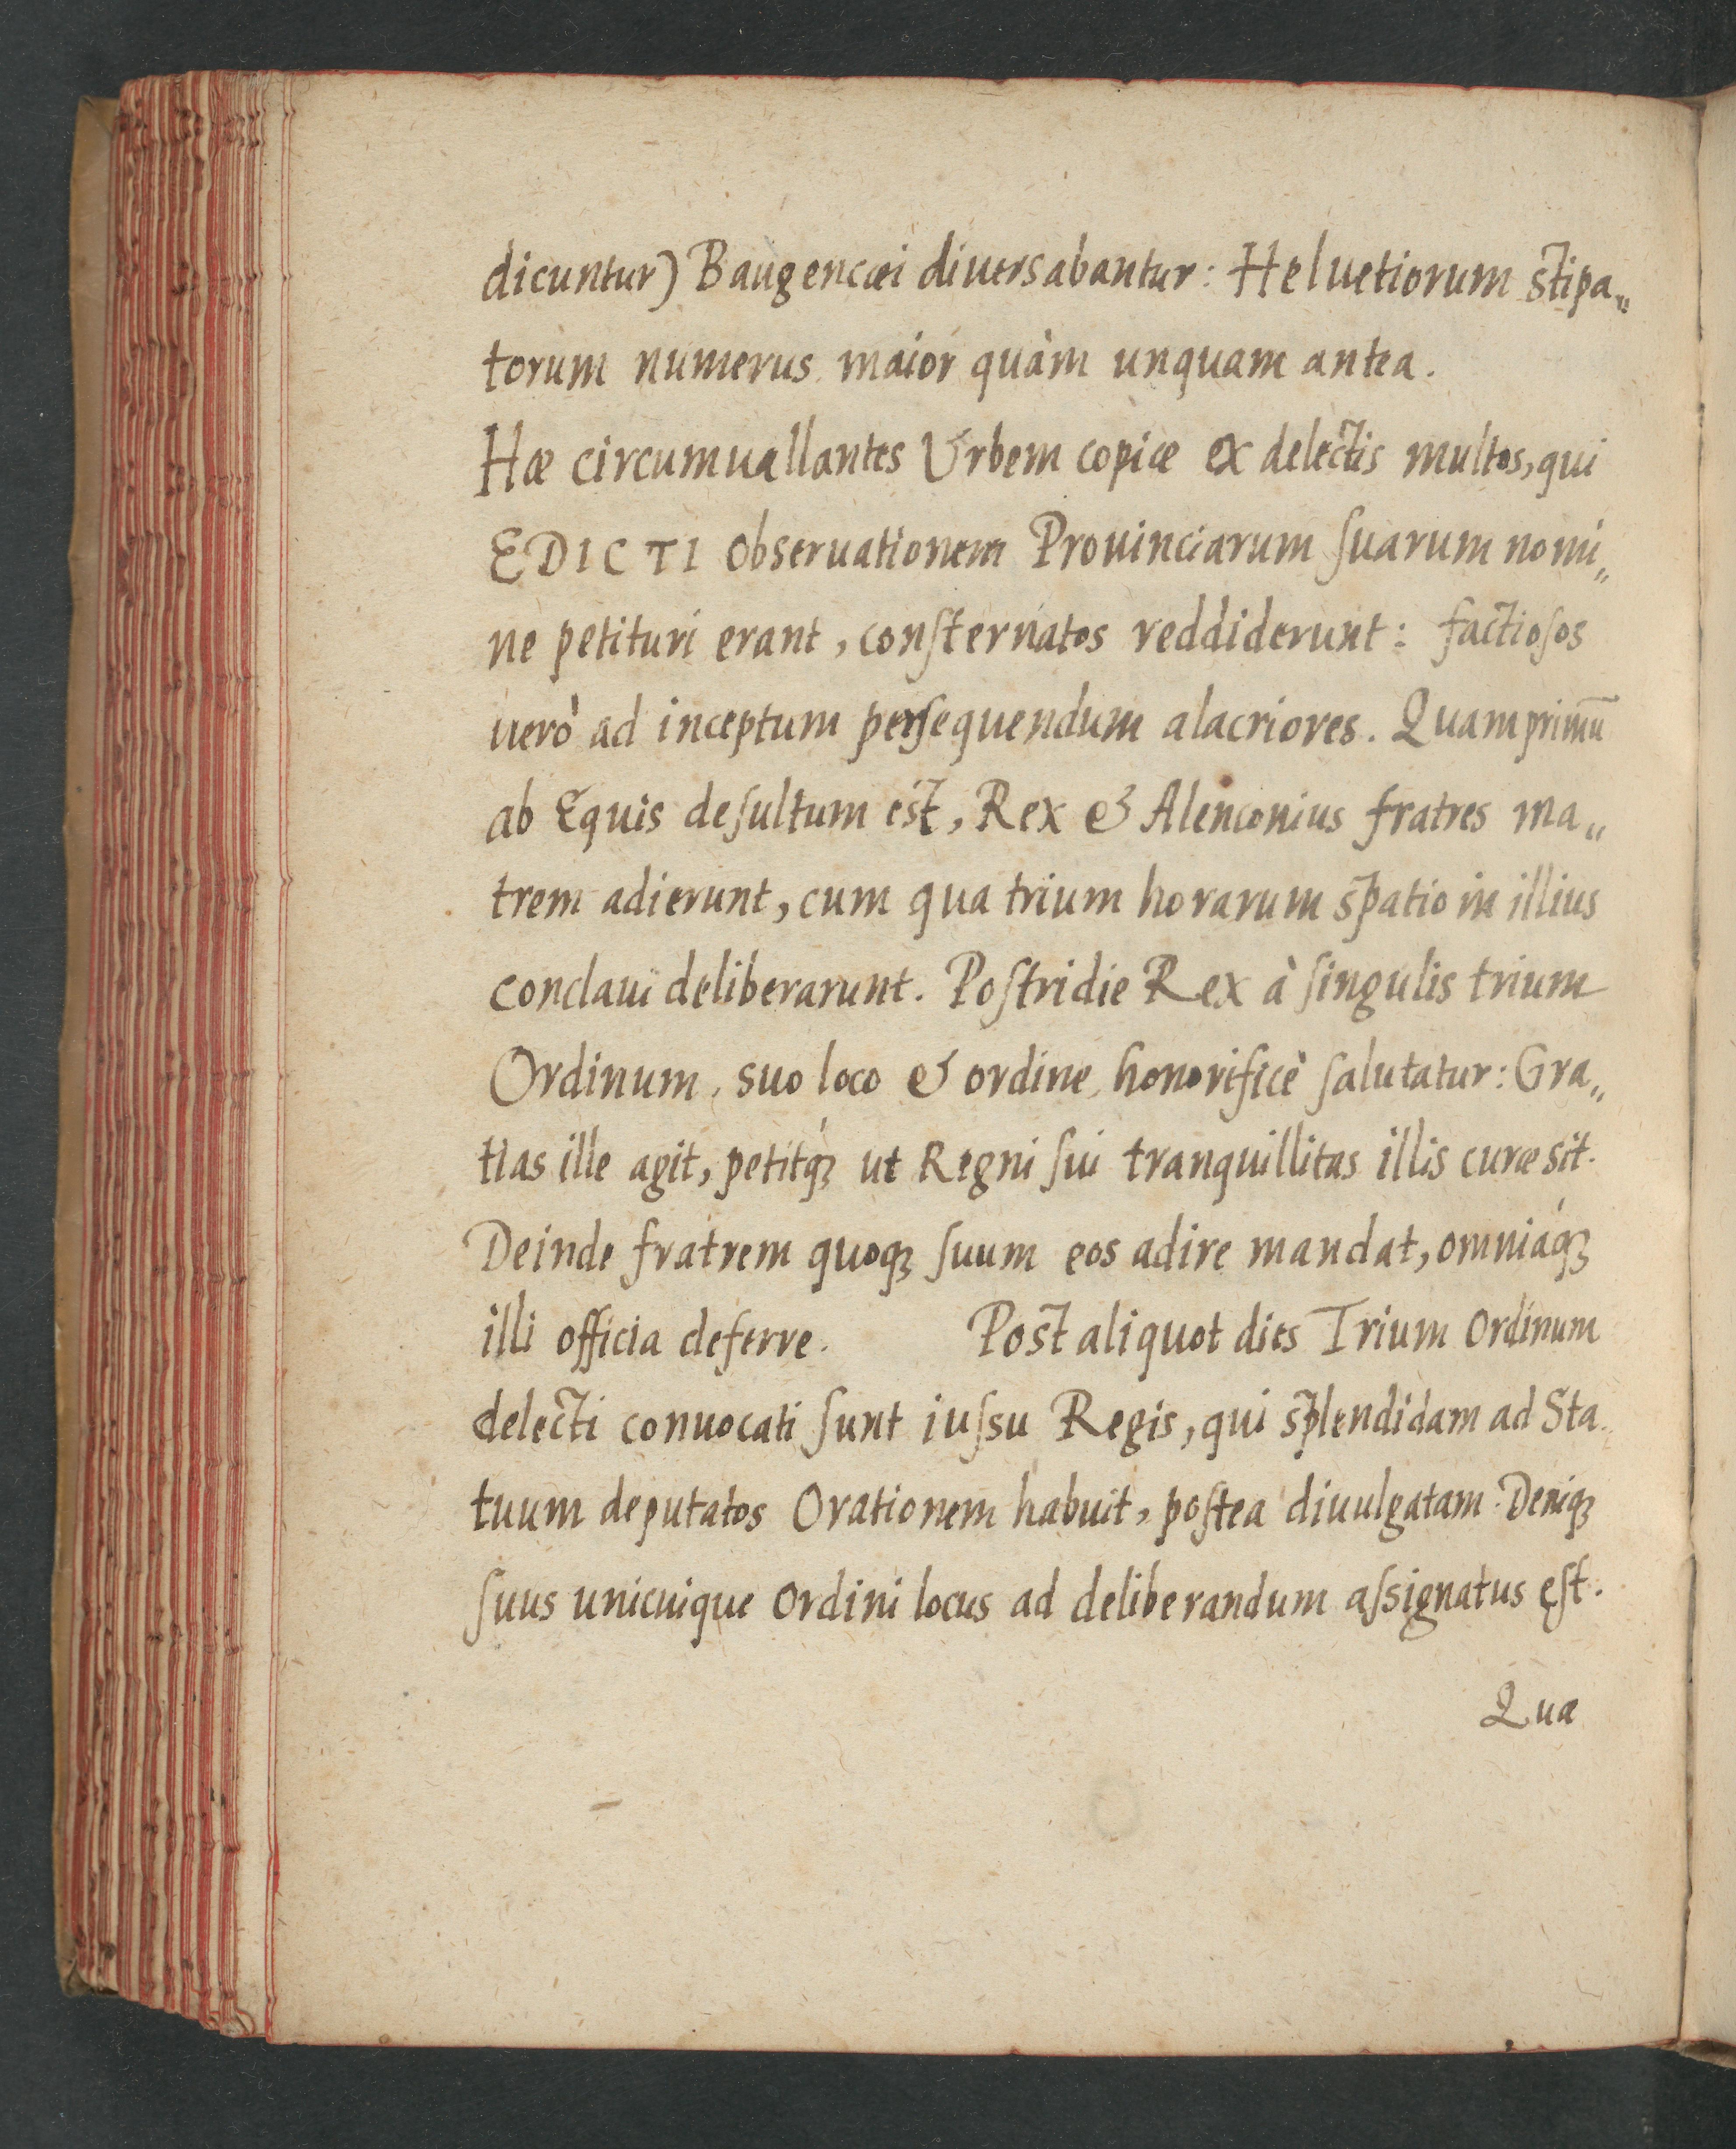 dicuntur) Baugencæi diuersabantur: Heluetiorum stipa„
torum numerus maior quàm unquam antea.
Hæ circumuallantes Vrbem copiæ ex delectis multos, qui
EDICTI obseruationem Prouinciarum ſuarum nomi„
ne petituri erant, conſternatos reddiderunt: factioſos
uerò ad inceptum perſequendum alacriores. Quamprimū
ab Equis deſultum est, Rex & Alenconius fratres ma„
trem adierunt, cum qua trium horarum spatio in illius
conclaui deliberarunt. Poſtridie Rex à ſingulis trium
Ordinum, suo loco & ordine, honorificè ſalutatur: Gra„
tias ille agit, petitq́ꝫ ut Regni ſui tranquillitas illis curæ sit.
Deinde fratrem quoqꝫ ſuum eos adire mandat, omniaq́ꝫ
illi officia deferre. Post aliquot dies Trium Ordinum
delecti conuocati ſunt iuſsu Regis, qui splendidam ad Sta„
tuum deputatos Orationem habuit, poſtea diuulgatam. Deniqꝫ
ſuus unicuique Ordini locus ad deliberandum aſsignatus eſt.
Quæ